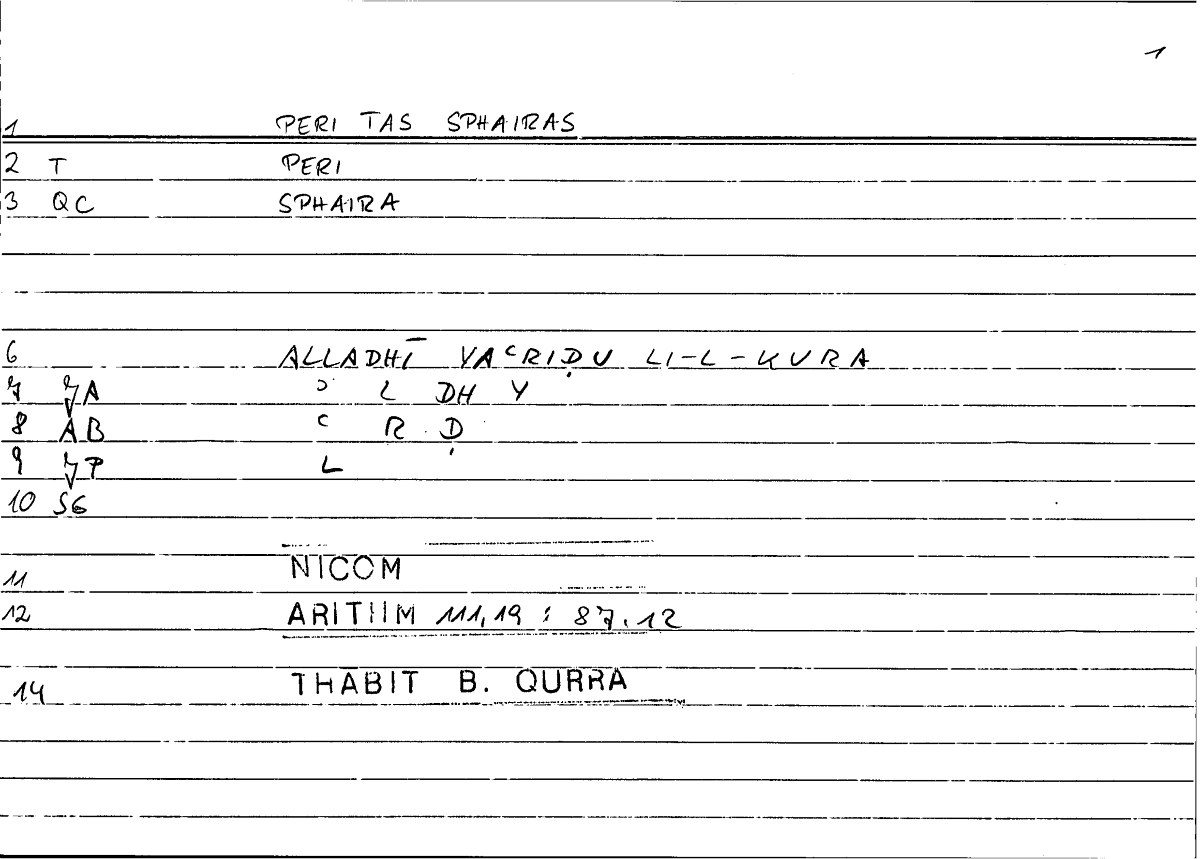 1
1 PERI TAS SPHAIRAS
2 T PERI
3 QC SPHAIRA
6 ALLADHĪ YAʿRIḌU LI-L-KURA
7 7A ʾ L DH Y
8 AB ʿ R Ḍ
9 7P L
10 SG
11 NICOM
12 ARITHM 111,19 : 87.12
14 THĀBIT B. QURRA